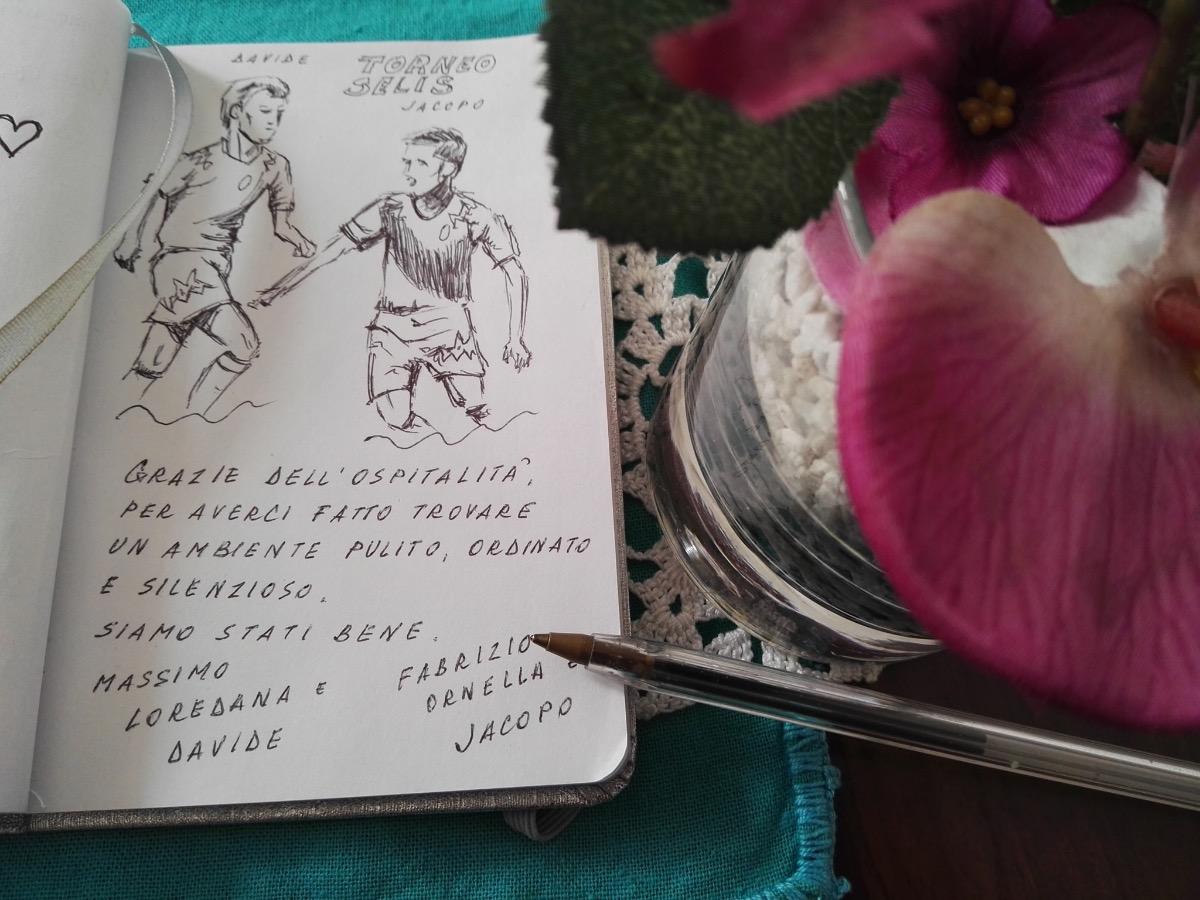 DAVIDE
TORNEO
SELIS
JACOPO
GRAZIE DELL'OSPITALITA',
PER AVERCI FATTO TROVARE
UN AMBIENTE PULITO, ORDINATO
E SILENZIOSO.
SIAMO STATI BENE.
MASSIMO
LOREDANA E
DAVIDE
FABRIZIO
ORNELLA E
JACOPO